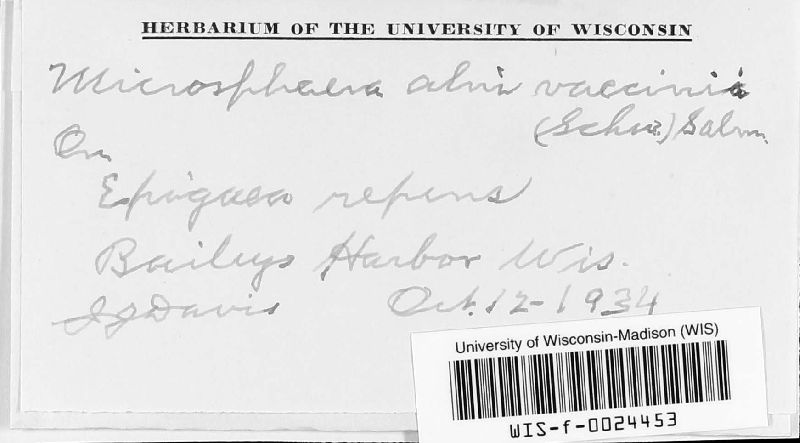 HERBARIUM OF THE UNIVERSITY OF WISCONSIN
Microsphaera alni vaccinii
(Schw.) Salm.
On
Epigaea repens
Baileys Harbor Wis.
JJDavis Oct. 12-1934
University of Wisconsin-Madison (WIS)
WIS-f-0024453